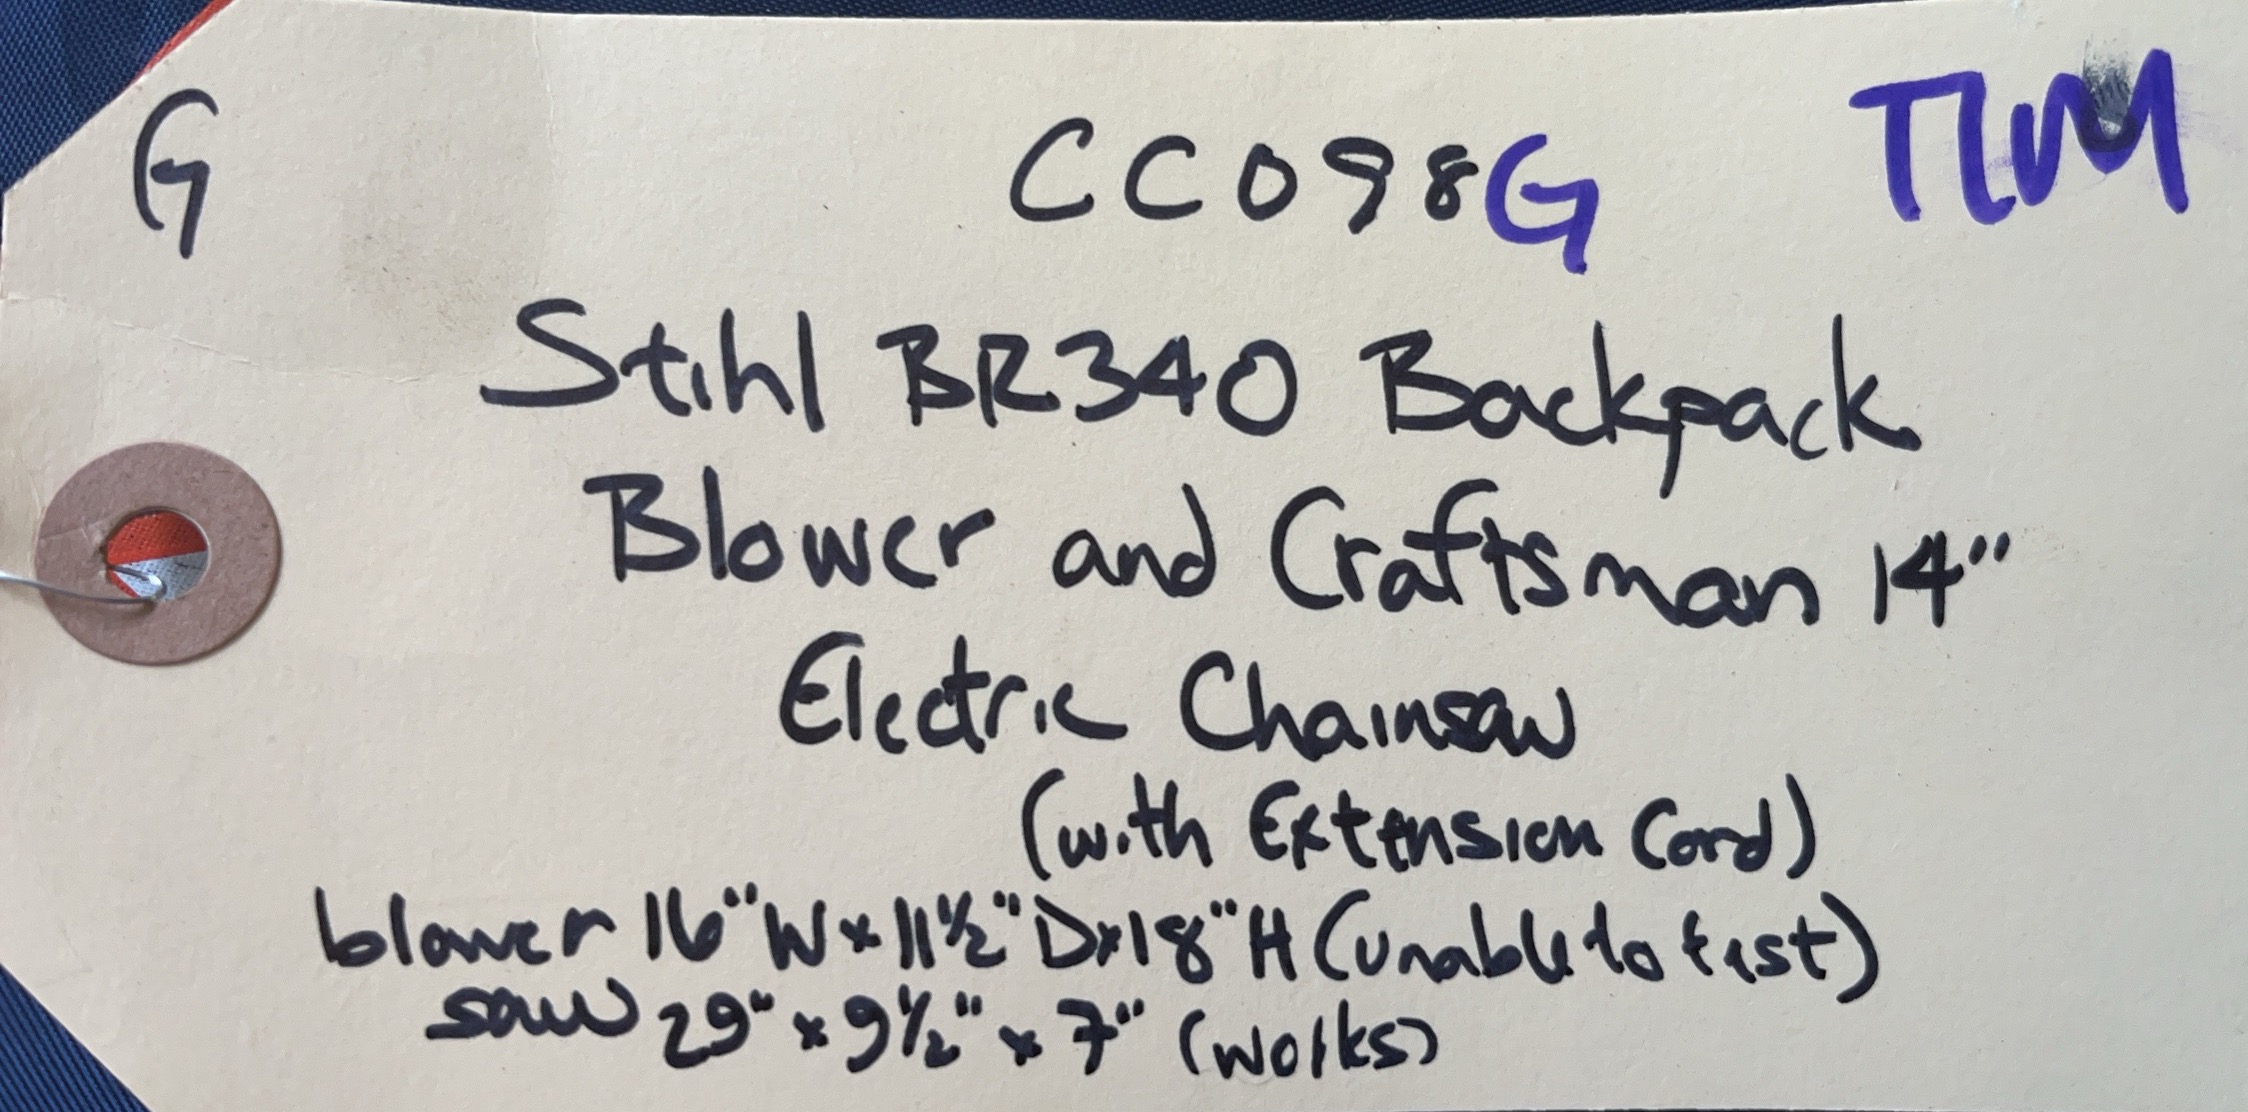 G CC098G TLM
Stihl BR340 Backpack
Blower and Craftsman 14"
Electric Chainsaw
(with Extension Cord)
blower 16"W x 11½"D x 18"H (unable to test)
saw 29" x 9½" x 7" (works)